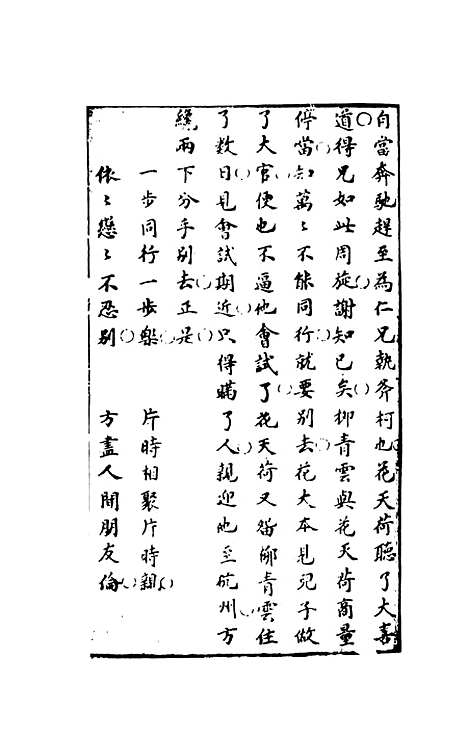 自當奔馳趕至為仁兄執斧柯也花天荷聽了大喜
道得兄如此周旋謝知已矣柳青雲與花天荷商量
停當知萬〻不能同行就要別去花大本見兒子做
了大官便也不逼他會試了花天荷又留柳青雲住
了数日見會試期近只得瞞了人親迎他至杭州方
纔兩下分手別去正是
一步同行一步樂　片時相聚片時親
依〻戀〻不忍別　方盡人間朋友倫